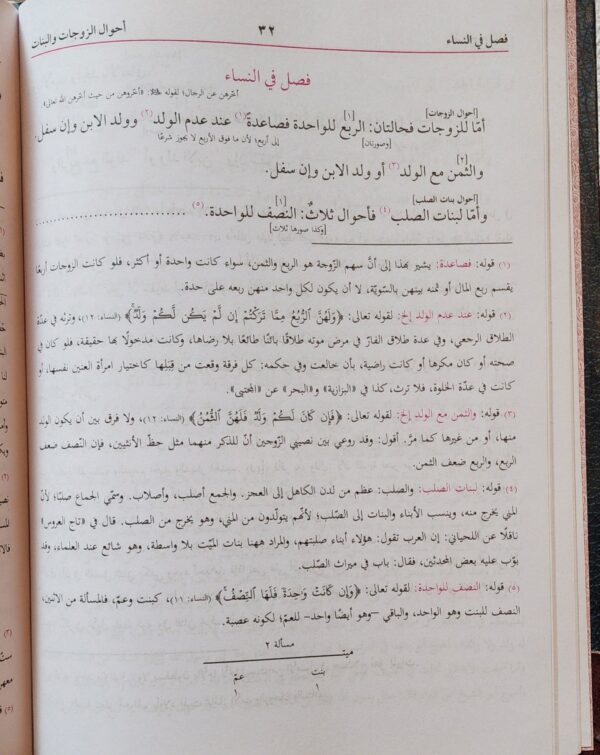 فصل في النساء ٣٢ أحوال الزوجات والبنات
فصل في النساء
أخّرهن عن الرجال؛ لقوله ﷺ: «أخّروهن من حيث أخّرهن الله تعالى».
[أحوال الزوجات] [١]
أمّا للزوجات فحالتان: الربع للواحدة فصاعدةً(١) عند عدم الولد(٢) وولد الابن وإن سفل.
[وصورتان] إلى أربع؛ لأن ما فوق الأربع لا يجوز شرعًا
[٢]
والثمن مع الولد(٣) أو ولد الابن وإن سفل.
[أحوال بنات الصلب] [١]
وأمّا لبنات الصلب(٤) فأحوال ثلاثٌ: النصف للواحدة.(٥) ................................
[وكذا صورها ثلاث]
(١) قوله: فصاعدة: يشير بهذا إلى أنَّ سهم الزّوجة هو الربع والثمن، سواء كانت واحدة أو أكثر، فلو كانت الزوجات أربعًا
يقسم ربع المال أو ثمنه بينهن بالسّويّة، لا أن يكون لكل واحد منهن ربعه على حدة.
(٢) قوله: عند عدم الولد إلخ: لقوله تعالى: ﴿وَلَهُنَّ الرُّبُعُ مِمَّا تَرَكْتُمْ إِن لَّمْ يَكُن لَّكُمْ وَلَدٌ﴾ (النساء: ١٢)، وترثه في عدّة
الطلاق الرجعي، وفي عدة طلاق الفارّ في مرض موته طلاقًا بائنًا طائعًا بلا رضاها، وكانت مدخولًا بها حقيقة، فلو كان في
صحته أو كان مكرها أو كانت راضية، بأن خالعت وفي حكمه: كل فرقة وقعت من قِبَلِها كاختيار امرأة العنين نفسها، أو
كانت في عدّة الخلوة، فلا ترث، كذا في «البزازية» و«البحر» عن «المجتبى».
(٣) قوله: والثمن مع الولد إلخ: لقوله تعالى: ﴿فَإِن كَانَ لَكُمْ وَلَدٌ فَلَهُنَّ الثُّمُنُ﴾ (النساء: ١٢)، ولا فرق بين أن يكون الولد
منها، أو من غيرها كما مرّ. أقول: وقد روعي بين نصيبي الزّوجين أنّ للذكر منهما مثل حظّ الأنثيين، فإن النّصف ضعف
الربع، والربع ضعف الثمن.
(٤) قوله: لبنات الصلب: والصلب: عظم من لدن الكاهل إلى العجز. والجمع أصلب، وأصلاب. وسمّي الجماع صلبًا؛ لأنّ
المني يخرج منه، وينسب الأبناء والبنات إلى الصّلب؛ لأنهم يتولّدون من المني، وهو يخرج من الصلب. قال في «تاج العروس»
ناقلًا عن اللحياني: إن العرب تقول: هؤلاء أبناء صلبتهم، والمراد ههنا بنات الميّت بلا واسطة، وهو شائع عند العلماء، وقد
بوّب عليه بعض المحدثين، فقال: باب في ميراث الصّلب.
(٥) قوله: النصف للواحدة: لقوله تعالى: ﴿وَإِن كَانَتْ وَٰحِدَةً فَلَهَا النِّصْفُ﴾ (النساء: ١١)، كبنت وعمّ، فالمسألة من الاثنين؛
النصف للبنت وهو الواحد، والباقي –وهو أيضًا واحد– للعمّ؛ لكونه عصبة.
مسألة ٢
ميـت
بنت عمّ
١ ١